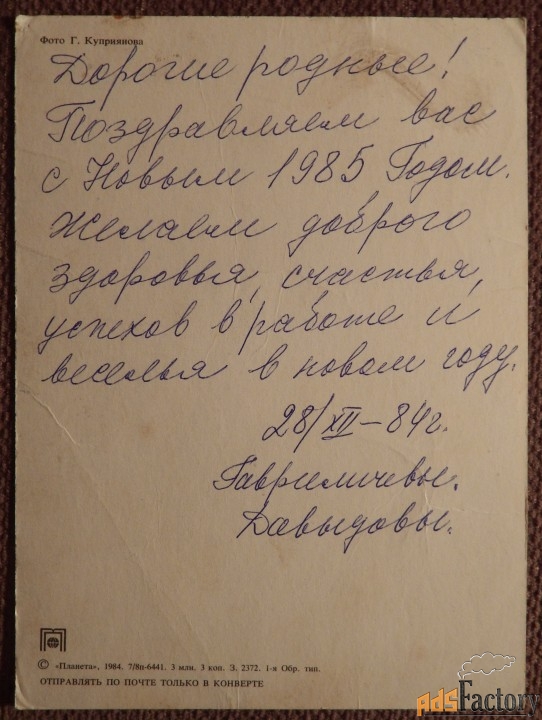 Фото Г. Куприянова
Дорогие родные!
Поздравляем вас
с Новым 1985 Годом.
Желаем доброго
здоровья, счастья,
успехов в работе и
веселья в новом году.
28/XII–84г.
Гавриличевы.
Давыдовы.
© «Планета», 1984. 7/8п-6441. 3 млн. 3 коп. З. 2372. 1-я Обр. тип.
ОТПРАВЛЯТЬ ПО ПОЧТЕ ТОЛЬКО В КОНВЕРТЕ
AdsFactory